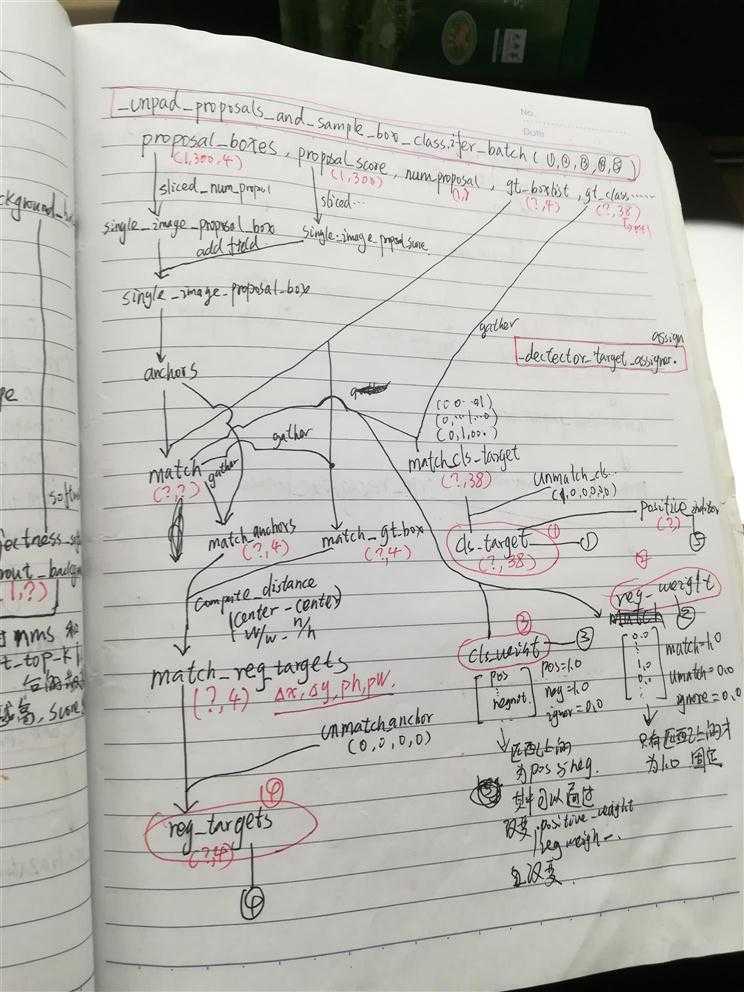 No.
Date
_unpad_proposals_and_sample_box_classifer_batch(①,②,③,④,⑤)
proposal_boxes, proposal_score, num_proposal, gt_boxlist, gt_class......
(1,300,4) (1,300) (1,) (?,4) (?,38)
sliced_num_propol
sliced...
single_image_proposal_box
single_image_proposal_score
add field
single_image_proposal_box
gather
assign
_dectector_target_assigner.
anchors
(0 0 ··01)
(0,···1··0)
(0,1,00·)
gather
match
(?,?)
gather
match_cls_target
(?,38)
unmatch_cls...
(1,0,0,0,0,0)
match_anchors
(?,4)
match_gt_box
(?,4)
cls_target ① ①
(?,38)
positive_indizer
(?)
⑤
compute_distance
(center-center)
w/w - h/h
②
reg_weight
match
②
③
cls_weight ③
match_reg_targets
(?,4) Δx,Δy,ph,pw.
[pos
⋮
neg not.]
pos=1.0
neg=1.0
ignor=0.0
[0.0
⋮
1.0
0.0
⋮]
match=1.0
umatch=0.0
ignore=0.0
unmatch anchor
(0,0,0,0)
匹配上的
为pos与neg.
其中可以通过
改变 positive_weight
neg weigh
只有匹配上的才
为1.0 固定
④
reg_targets
(?,4)
④
ckground_
softm
ectness_
out_backgr
(1,?)
nms 和
t_top_k
高, score